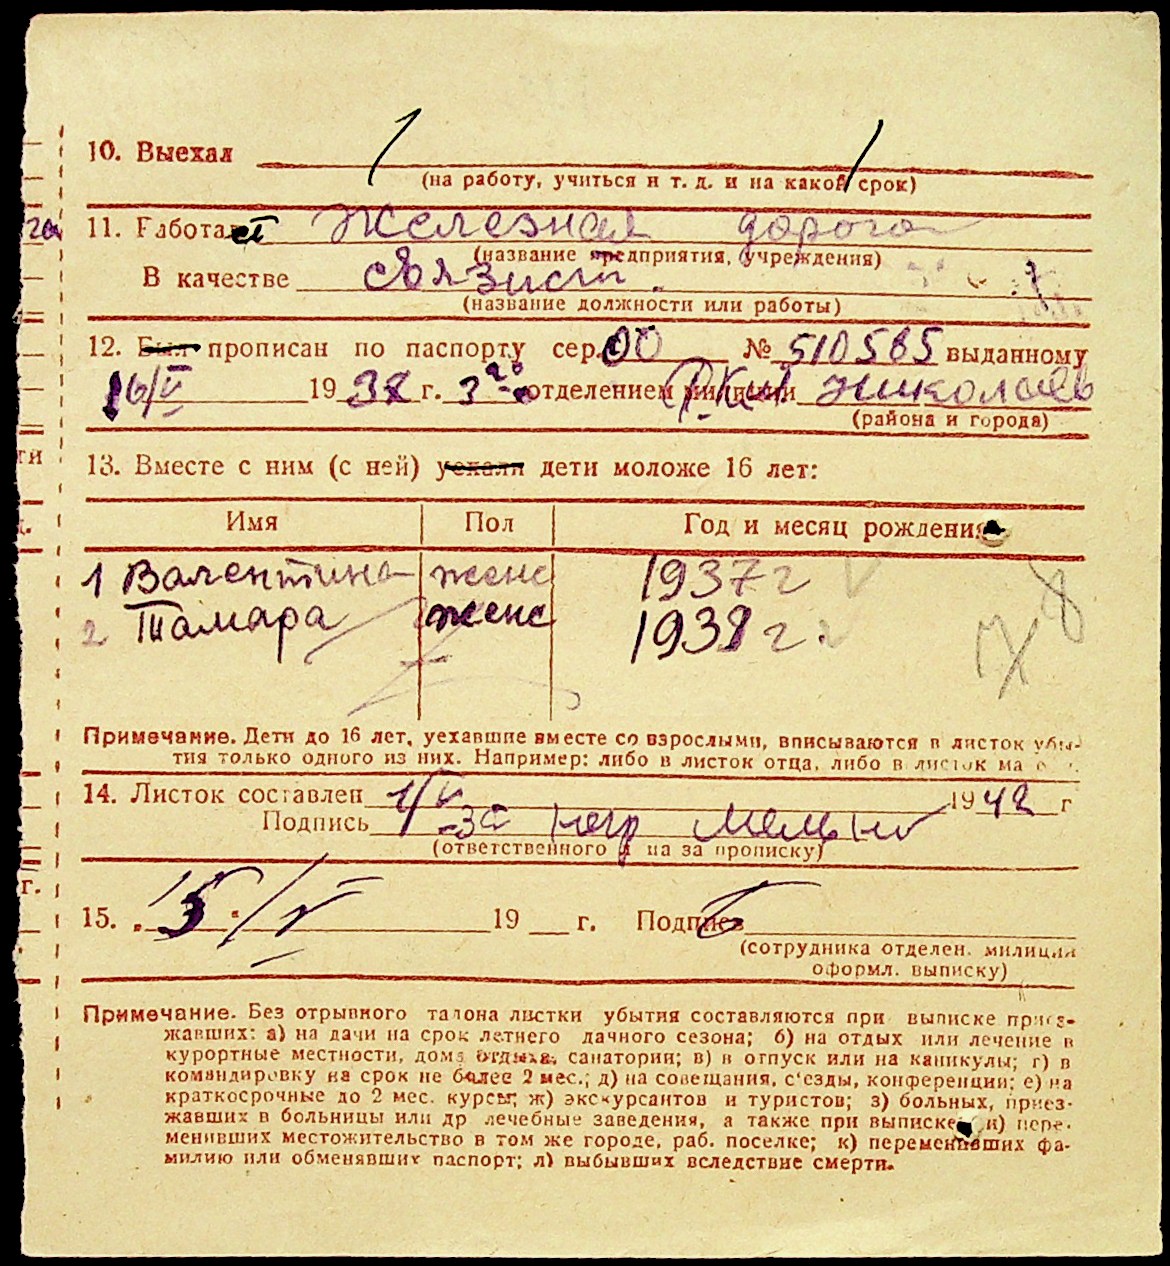 10. Выехал
(на работу, учиться и т. д. и на какой срок)
га
11. Работает Железная дорога
(название предприятия, учреждения)
В качестве связист.
(название должности или работы)
12. Был прописан по паспорту сер. 00 № 510565 выданному
16/V 1938 г. 3 отделением милиции Р.К.М. Николаев
(района и города)
ти
13. Вместе с ним (с ней) уехали дети моложе 16 лет:
Имя Пол Год и месяц рождения
1 Валентина женс 1937 г
2 Тамара женс 1938 г.
Примечание. Дети до 16 лет, уехавшие вместе со взрослыми, вписываются в листок убы-
тия только одного из них. Например: либо в листок отца, либо в листок ма
14. Листок составлен 1/V 1942 г
Подпись за
(ответственного л на за прописку)
г.
15. „15“/V 19 г. Подпись
(сотрудника отделен. милиции
оформл. выписку)
Примечание. Без отрывного талона листки убытия составляются при выписке приез-
жавших: а) на дачи на срок летнего дачного сезона; б) на отдых или лечение в
курортные местности, дома отдыха, санатории; в) в отпуск или на каникулы; г) в
командировку на срок не более 2 мес.; д) на совещания, с'езды, конференции; е) на
краткосрочные до 2 мес. курсы; ж) экскурсантов и туристов; з) больных, приез-
жавших в больницы или др лечебные заведения, а также при выписке и) пере-
менивших местожительство в том же городе, раб. поселке; к) переменивших фа-
милию или обменявших паспорт; л) выбывших вследствие смерти.